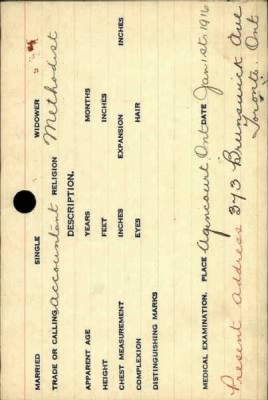 MARRIED SINGLE WIDOWER
TRADE OR CALLING Accountant RELIGION Methodist
DESCRIPTION.
APPARENT AGE YEARS MONTHS
HEIGHT FEET INCHES
CHEST MEASUREMENT INCHES EXPANSION INCHES
COMPLEXION EYES HAIR
DISTINGUISHING MARKS
MEDICAL EXAMINATION. PLACE Agincourt Ont DATE Jan 1st. 1916
Present Address 373 Brunswick Ave
Toronto. Ont